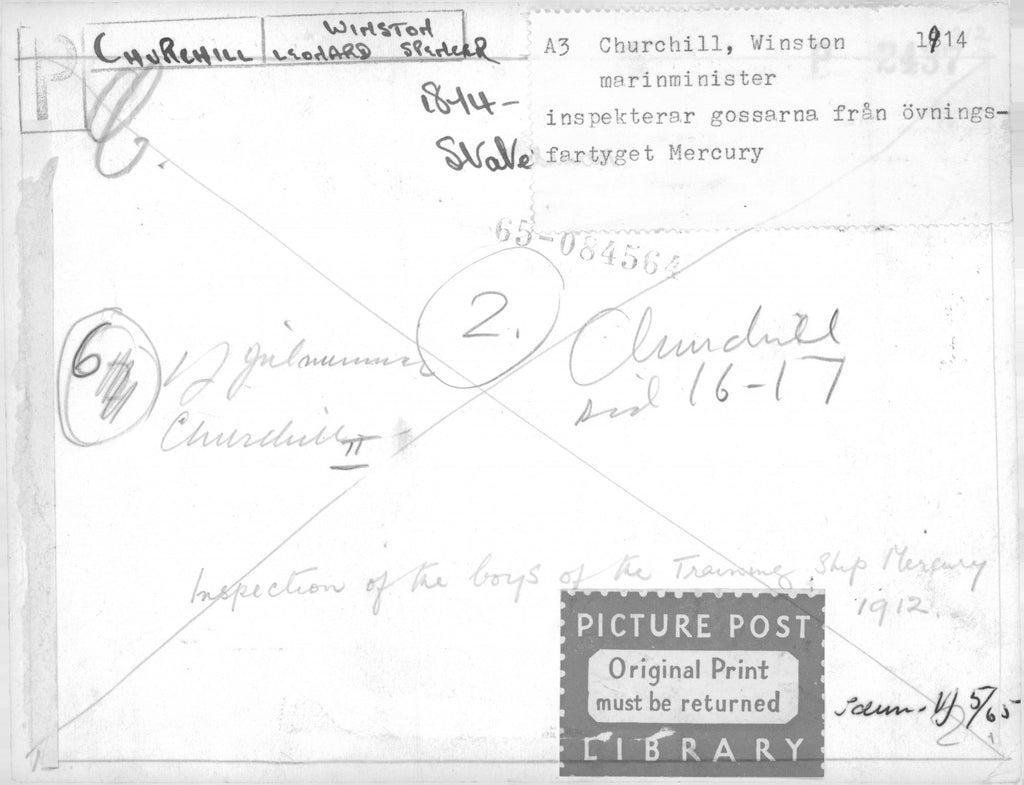 CHURCHILL
WINSTON
LEONARD SPENCER
1874-
A3 Churchill, Winston 1914
marinminister
inspekterar gossarna från övnings-
fartyget Mercury
65-084564
2.
6
Churchill
sid 16-17
Churchill II
Inspection of the boys of the Training Ship Mercury
1912.
PICTURE POST
Original Print
must be returned
LIBRARY
5/65